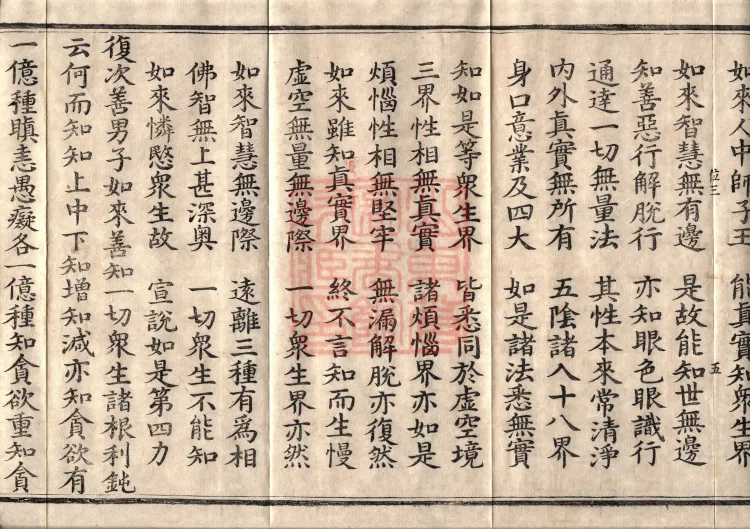 如來人中師子王 能真實知眾生界
如來智慧無有邊 是故能知世無邊
位三 五
知善惡行解脫行 亦知眼色眼識行
通達一切無量法 其性本來常清淨
內外真實無所有 五陰諸入十八界
身口意業及四大 如是諸法悉無實
知如是等眾生界 皆悉同於虛空境
三界性相無真實 諸煩惱界亦如是
煩惱性相無堅牢 無漏解脫亦復然
如來雖知真實界 終不言知而生慢
虛空無量無邊際 一切眾生界亦然
如來智慧無邊際 遠離三種有為相
佛智無上甚深奧 一切眾生不能知
如來憐愍眾生故 宣說如是第四力
復次善男子如來善知一切眾生諸根利鈍
云何而知知上中下知增知減亦知貪欲有
一億種瞋恚愚癡各一億種知貪欲重知貪